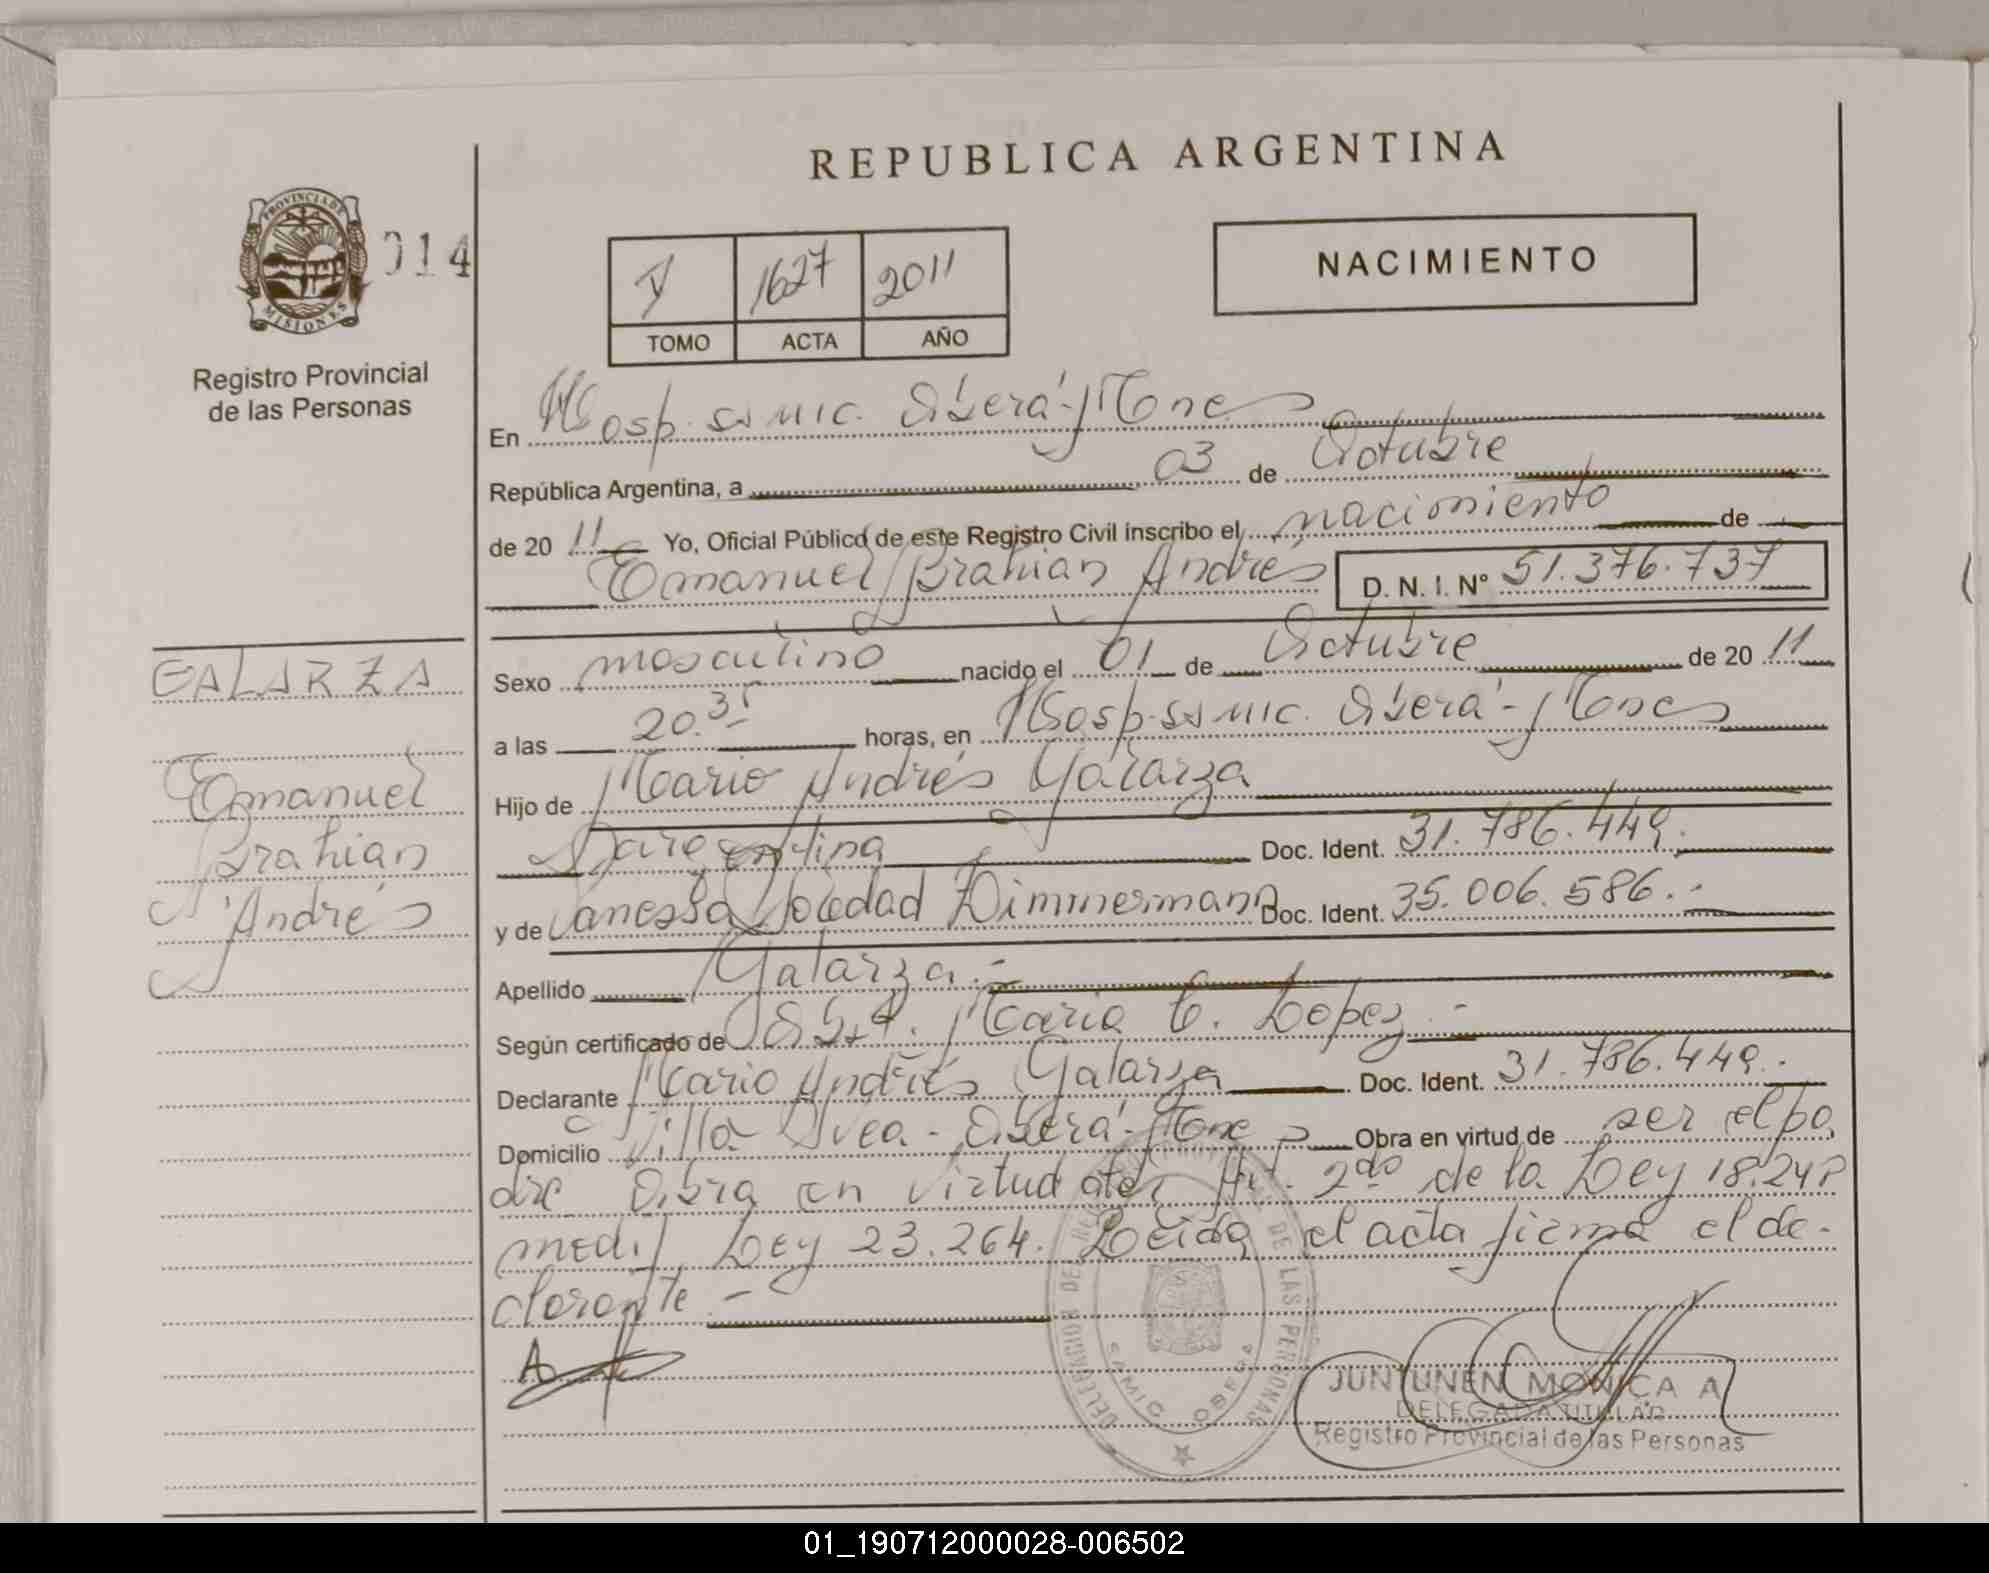 REPUBLICA ARGENTINA
PROVINCIA DE
MISIONES
014
Registro Provincial
de las Personas
V 1627 2011
TOMO ACTA AÑO
NACIMIENTO
En Hosp. ss mic. Oberá-Mones
República Argentina, a 03 de Octubre
de 20 11 Yo, Oficial Público de este Registro Civil inscribo el nacimiento de
Emanuel Brahian Andrés D. N. I. Nº 51.376.737
GALARZA
Emanuel
Brahian
Andrés
Sexo masculino nacido el 01 de Octubre de 20 11
a las 20.35 horas, en Hosp. ss mic. Oberá-Mones
Hijo de Mario Andrés Galarza
argentina Doc. Ident. 31.786.449.
y de Vanessa Soledad Zimmermann Doc. Ident. 35.006.586.-
Apellido Galarza.-
Según certificado de Obst. Maria C. Lopez.-
Declarante Mario Andrés Galarza Doc. Ident. 31.786.449.-
Domicilio Villa Svea - Oberá-Mones Obra en virtud de ser el pa
dre Obra en virtud del Art. 2do de la Ley 18.248
modif Ley 23.264. Leida el acta firma el de-
clarante.-
DELEGACION DEL REGISTRO DE LAS PERSONAS
SAMIC OBERA
JUNTUNEN MONICA A
DELEGADA TITULAR
Registro Provincial de las Personas
01_190712000028-006502